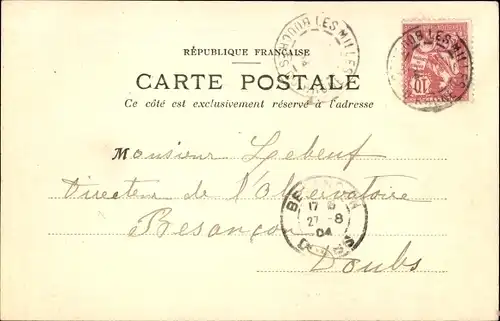 LES MILLES
RÉPUBLIQUE FRANÇAISE
CARTE POSTALE
Ce côté est exclusivement réservé à l'adresse
Monsieur Lebeuf
Directeur de l'Observatoire
Besançon
Doubs
17
27 -8
04
10
LES MILLES